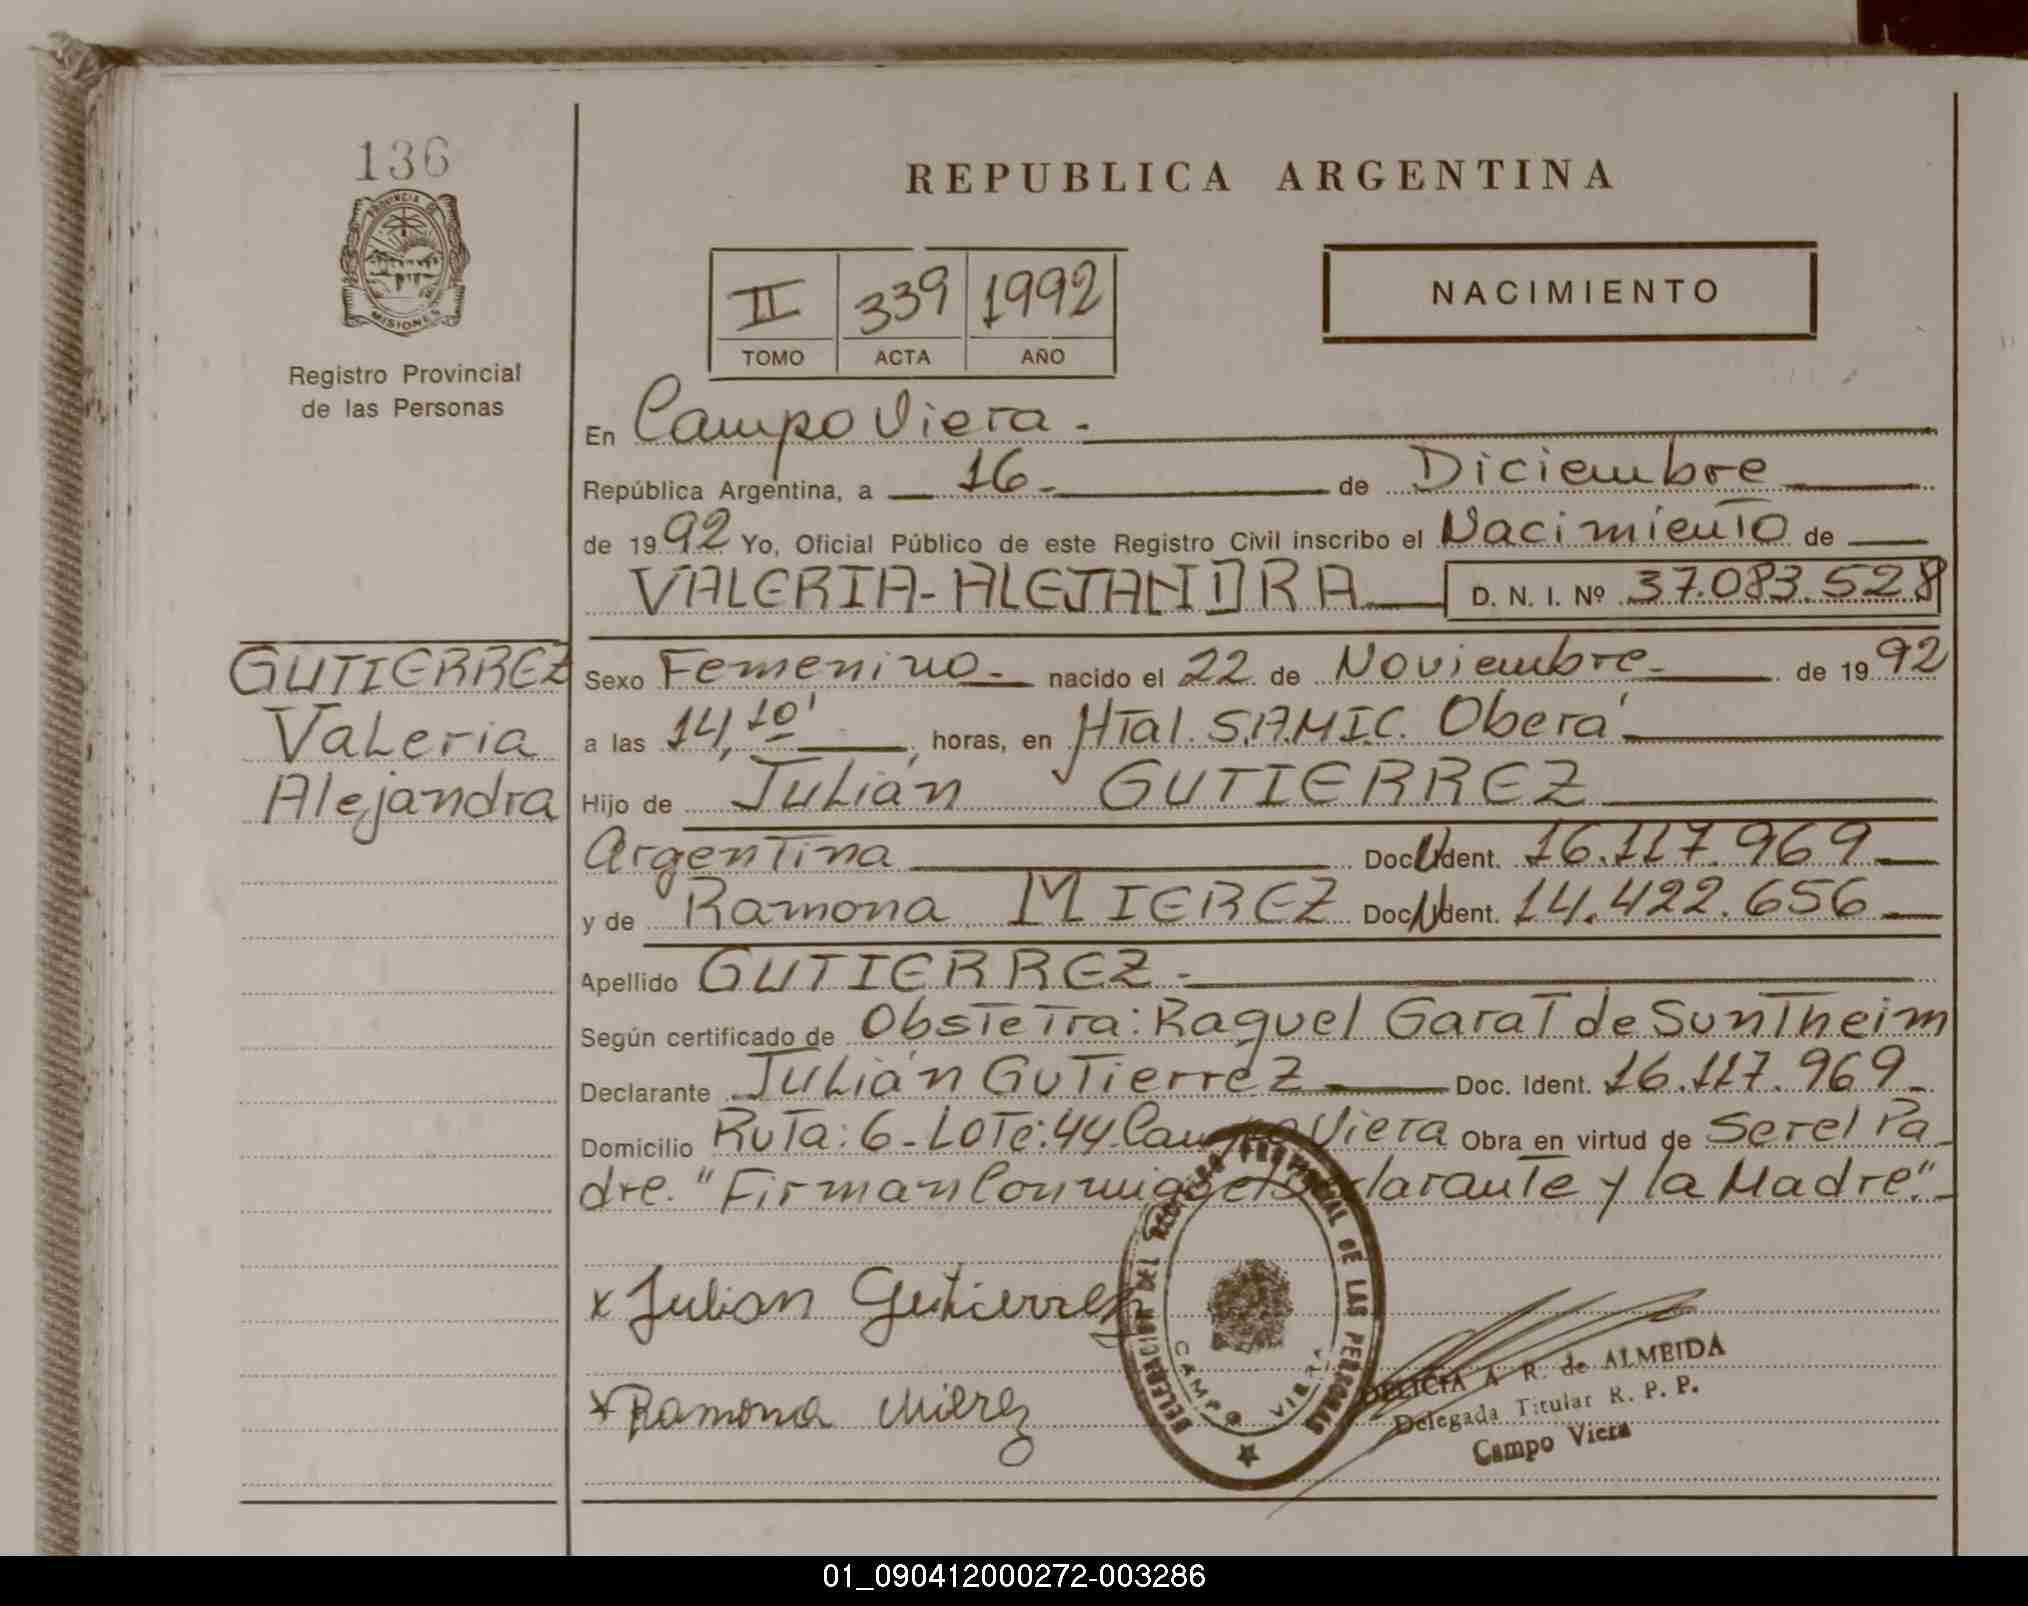 136
PROVINCIA DE
MISIONES
Registro Provincial
de las Personas
REPUBLICA ARGENTINA
II 339 1992
TOMO ACTA AÑO
NACIMIENTO
En Campo Viera.
República Argentina, a 16 de Diciembre
de 1992 Yo, Oficial Público de este Registro Civil inscribo el Nacimiento de
VALERIA-ALEJANDRA D. N. I. Nº 37.083.528
GUTIERREZ
Valeria
Alejandra
Sexo Femenino nacido el 22 de Noviembre de 1992
a las 14,10' horas, en Htal. S.A.M.I.C. Oberá
Hijo de Julián GUTIERREZ
Argentina Doc. Ident. 16.117.969
y de Ramona MIEREZ Doc. Ident. 14.422.656
Apellido GUTIERREZ
Según certificado de Obstetra: Raquel Garat de Suntheim
Declarante Julián Gutierrez Doc. Ident. 16.117.969
Domicilio Ruta: 6 - Lote: 44 Campo Viera Obra en virtud de Ser el Pa-
dre. "Firman Conmigo el Declarante y la Madre".
x Julian Gutierrez
x Ramona Mierez
DELEGACION DEL REGISTRO PROVINCIAL DE LAS PERSONAS
CAMPO VIERA
DELICIA A R. de ALMEIDA
Delegada Titular R. P. P.
Campo Viera
01_090412000272-003286